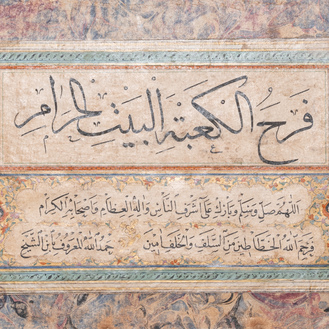 فرح الكعبة البيت الحرام
اللهم صل وسلم وبارك على اشرف الناس واله العظماء واصحابه الكرام
ورحم الله الخطاطين من السلف والخلف امين حمد الله المعروف بابن الشيخ